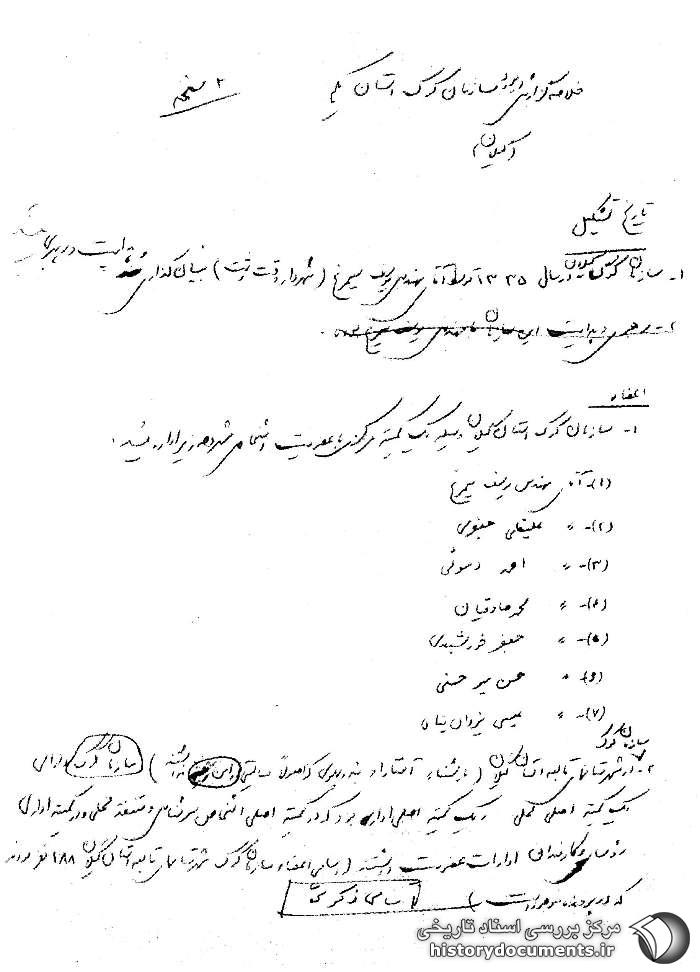 خلاصه گزارش درباره سازمان کوک استان یکم
۲ صفحه
(گیلان)
تاریخ تشکیل
۱- سازمان کوک گیلان در سال ۱۳۳۵ توسط آقای مهندس یوسف سیمرغ (شهردار وقت رشت) بنیان گذاری شد
۲- این سازمان
اعضاء
۱- سازمان کوک استان گیلان بوسیله یک کمیته مرکزی با عضویت اشخاص مشروحه زیر اداره میشد.
(۱)- آقای مهندس یوسف سیمرغ
(۲)- " علیقلی
(۳)- " احمد
(۴)- " محمد صادقیان
(۵)- " جعفر خورشیدی
(۶)- " حسن میرحسنی
(۷)- " عیسی یزدان پناه
سازمان کوک
۲- در شهرستانهای تابعه استان گیلان ( سازمان کوک دارای
یک کمیته اصلی محلی و یک کمیته اصلی اداری بود که در کمیته اصلی اشخاص سرشناس و متنفذ محلی و در کمیته اداری
رؤسا و کارمندان ادارات عضویت داشتند (اسامی اعضاء سازمان کوک شهرستانهای تابعه استان گیلان ۱۸۸ نفر بودند
که در پرونده موجود است) اسامی ذکر
مرکز بررسی اسناد تاریخی
historydocuments.ir